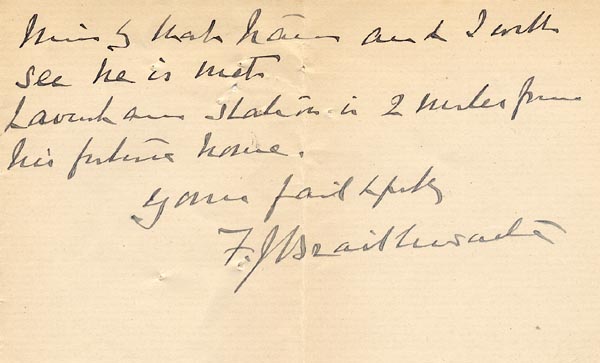 him by that train and I will
see he is met.
Lavenham station is 2 miles from
his future home.
Yours faithfully
F. J. Braithwaite